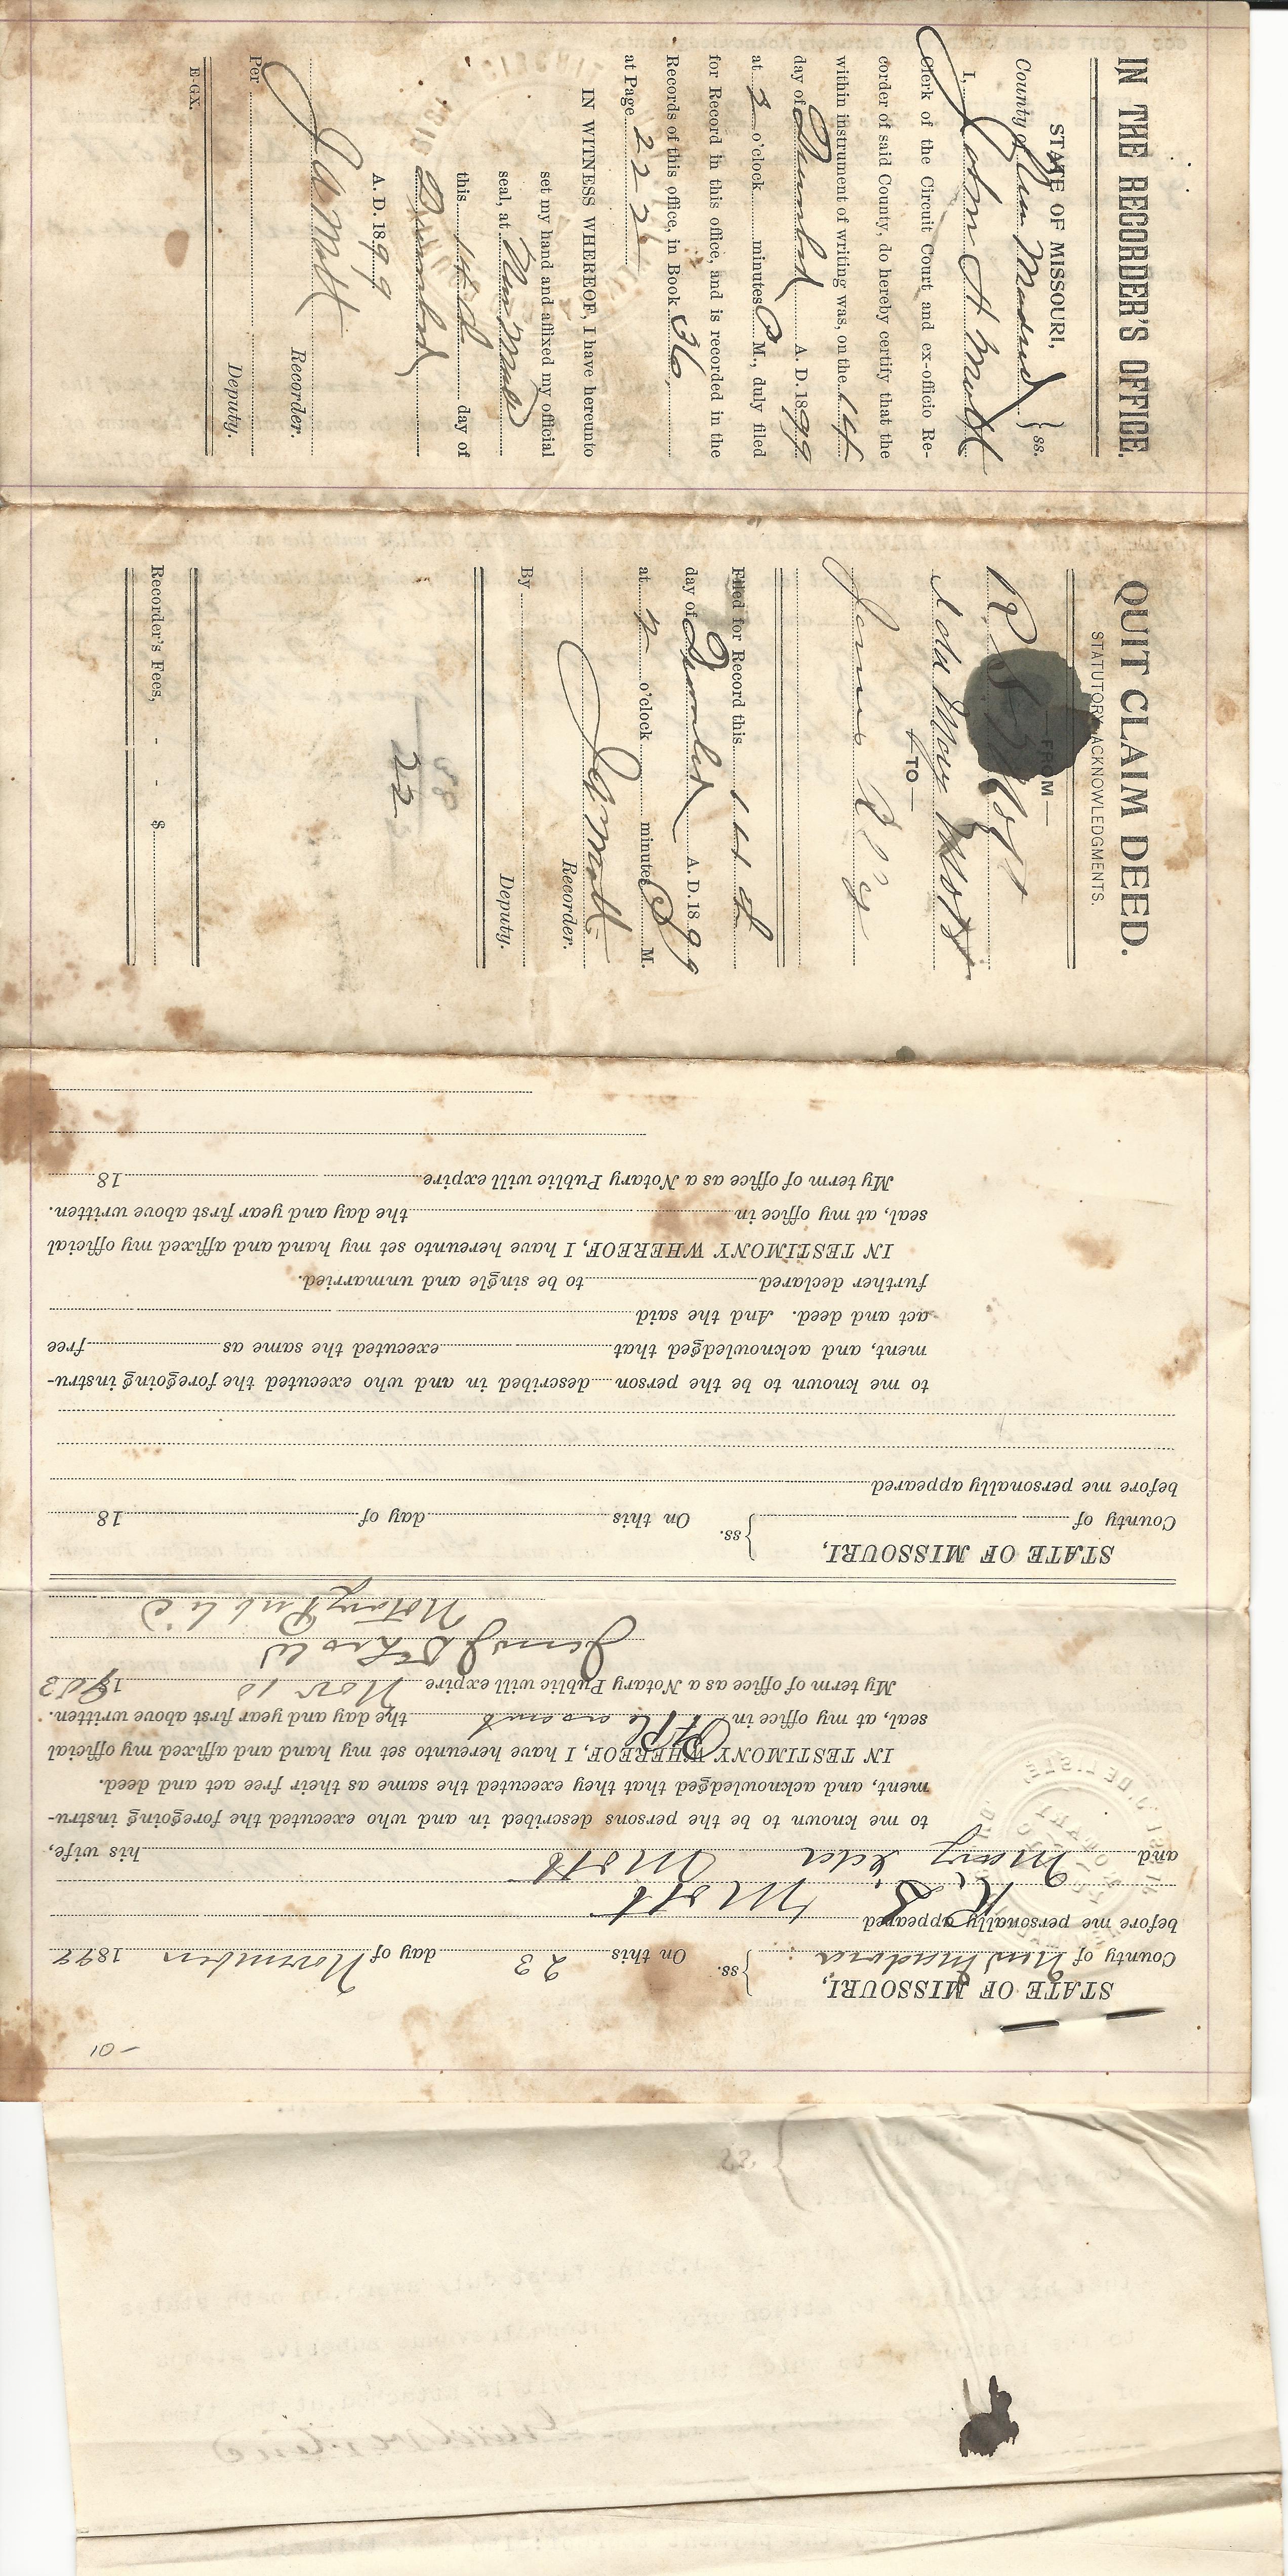 IN THE RECORDER'S OFFICE.
STATE OF MISSOURI,
County of New Madrid } ss.
I, John A Mott
Clerk of the Circuit Court and ex-officio Re-
corder of said County, do hereby certify that the
within instrument of writing was, on the 14
day of December A. D. 1899
at 2 o'clock minutes P M., duly filed
for Record in this office, and is recorded in the
Records of this office, in Book 36,
at Page 222
IN WITNESS WHEREOF, I have hereunto
set my hand and affixed my official
seal, at New Madrid
this 14th day of
December
A. D. 1899
J A Mott
Recorder.
Per
Deputy.
E-GX.
QUIT CLAIM DEED.
STATUTORY ACKNOWLEDGMENTS.
—FROM—
R. S. Mott
Ida May Mott
—TO—
James
Filed for Record this 14th
day of December A. D. 1899
at 2 o'clock minutes P M.
J A Mott
Recorder.
By
Deputy.
22
Recorder's Fees, - - $
STATE OF MISSOURI,
County of New Madrid } ss. On this 23 day of November 1899
before me personally appeared
R. S. Mott
and Mary Ida Mott his wife,
to me known to be the persons described in and who executed the foregoing instru-
ment, and acknowledged that they executed the same as their free act and deed.
IN TESTIMONY WHEREOF, I have hereunto set my hand and affixed my official
seal, at my office in the day and year first above written.
My term of office as a Notary Public will expire Nov 10 1903
Notary Public
STATE OF MISSOURI,
County of } ss. On this day of 18
before me personally appeared
to me known to be the person described in and who executed the foregoing instru-
ment, and acknowledged that executed the same as free
act and deed. And the said
further declared to be single and unmarried.
IN TESTIMONY WHEREOF, I have hereunto set my hand and affixed my official
seal, at my office in the day and year first above written.
My term of office as a Notary Public will expire 18
10-